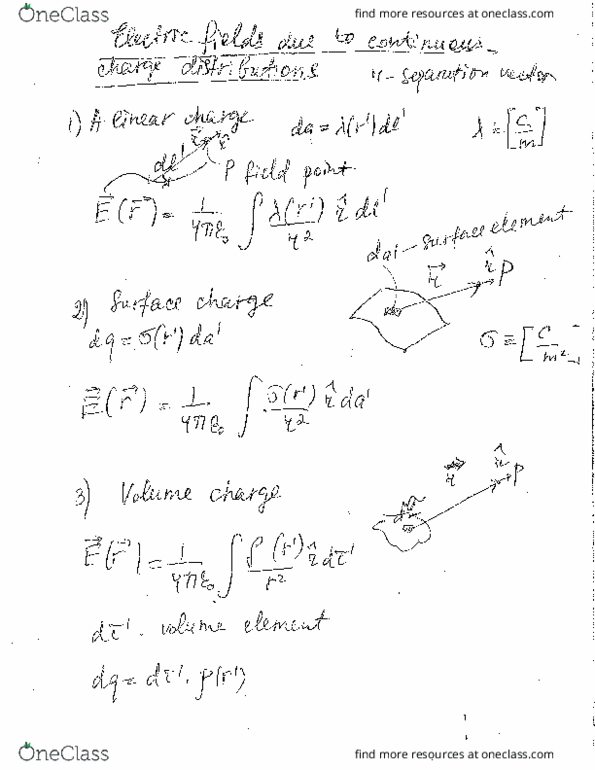 OneClass
find more resources at oneclass.com
Electric fields due to continuous
charge distributions
r - separation vector
1) A linear charge
dq = λ(r')dl'
λ = [C/m]
dl'
P field point
E⃗(r⃗) = 1/4πε₀ ∫ λ(r')/r² r̂ dl'
da' - surface element
r⃗
r̂
P
2) Surface charge
dq = σ(r')da'
σ ≡ [C/m²]
E⃗(r⃗) = 1/4πε₀ ∫ σ(r')/r² r̂ da'
r⃗
r̂
P
3) Volume charge
E⃗(r⃗) = 1/4πε₀ ∫ ρ(r')/r² r̂ dτ'
dτ' - volume element
dq = dτ' · ρ(r')
OneClass
find more resources at oneclass.com